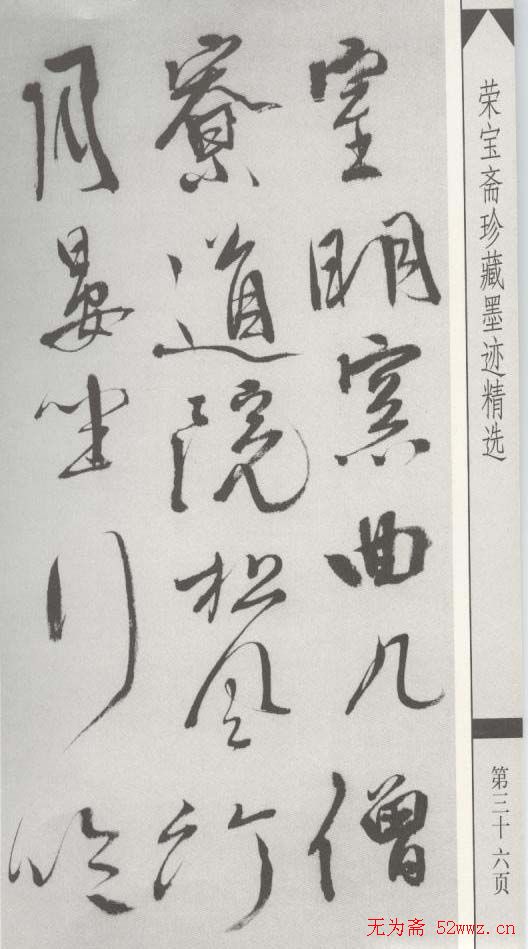 荣宝斋珍藏墨迹精选
第三十六页
室明窗曲几僧
寮道院松風竹
月晏坐行吟
无为斋 52wwz.cn